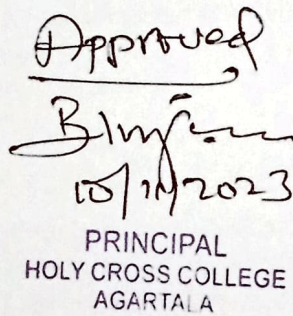 Approved
10/11/2023
PRINCIPAL
HOLY CROSS COLLEGE
AGARTALA